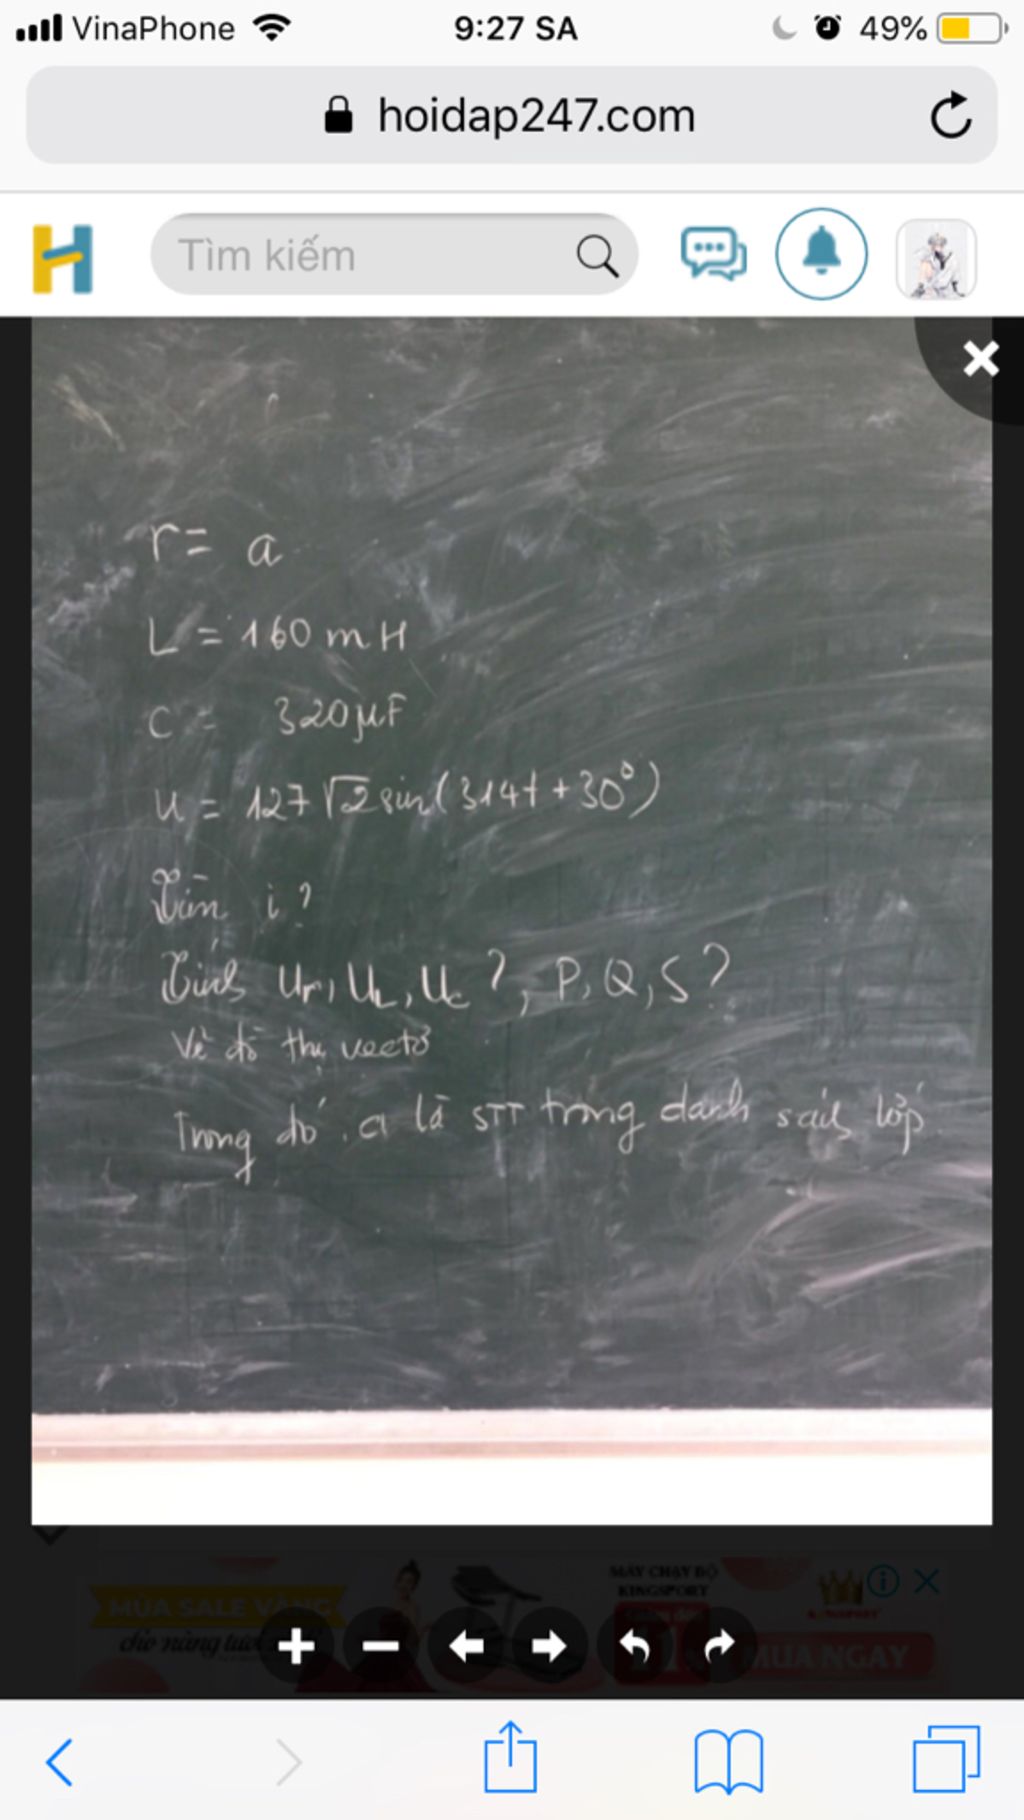 VinaPhone 9:27 SA 49%
hoidap247.com
Tìm kiếm
r = a
L = 160 mH
C = 320μF
u = 127√2 sin(314t + 30°)
Tìm i?
Tính Ur, UL, Uc?, P, Q, S?
Vẽ đồ thị vectơ
Trong đó, a là STT trong danh sách lớp.
MÙA SALE VÀNG
MÁY CHẠY BỘ
KINGSPORT
MUA NGAY